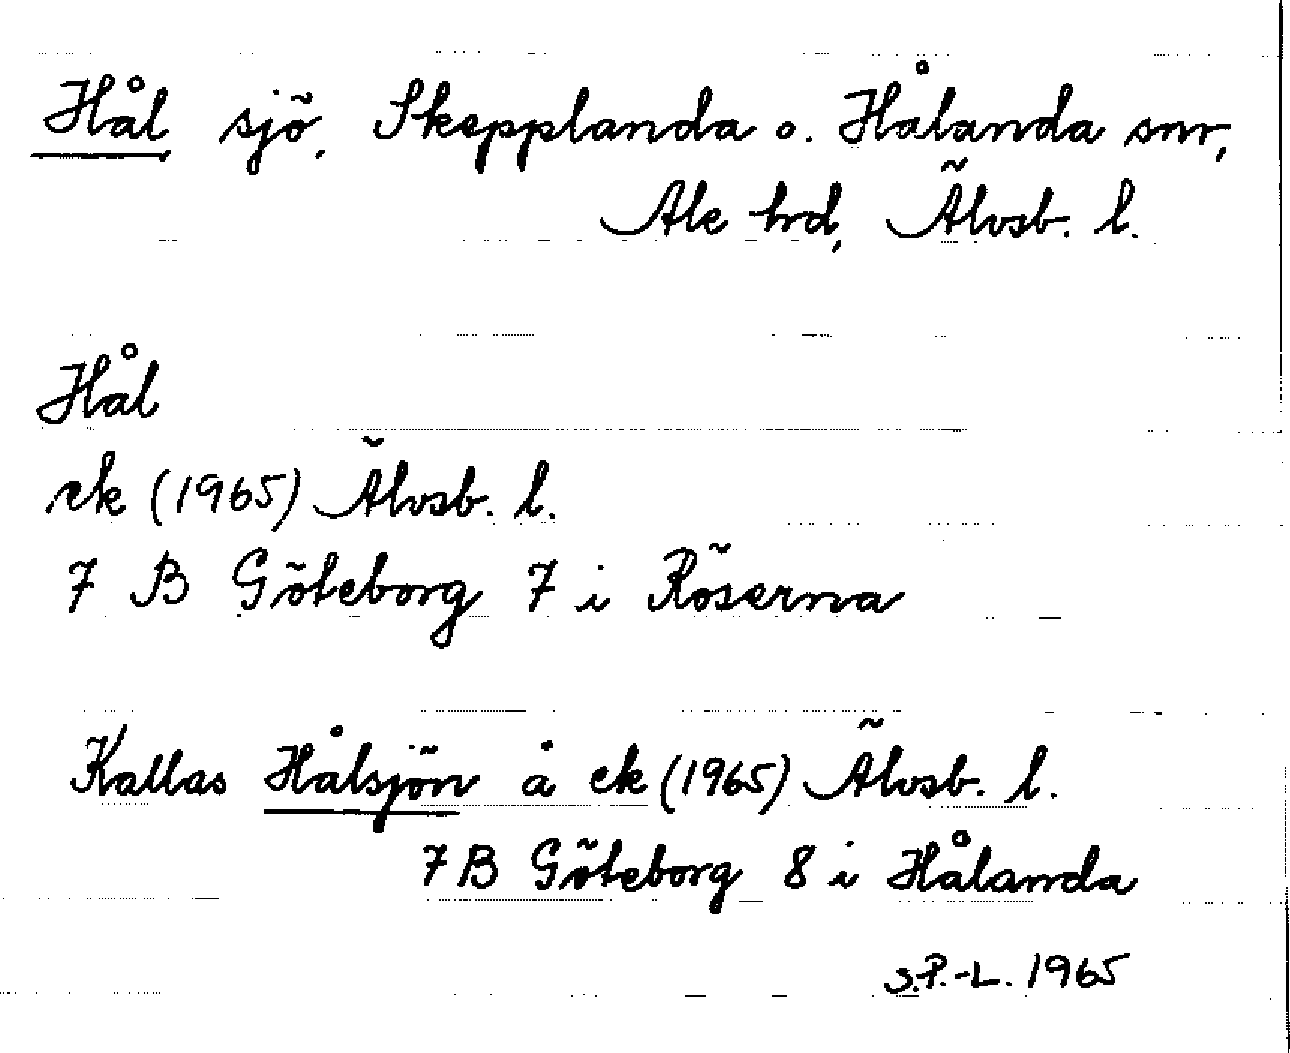 Hål sjö, Skepplanda o. Hålanda snr,
Ale hrd, Älvsb. l.
Hål
ek (1965) Älvsb. l.
7 B Göteborg 7 i Röserna
Kallas Hålsjön å ek (1965) Älvsb. l.
7 B Göteborg 8 i Hålanda
S.P.-L. 1965